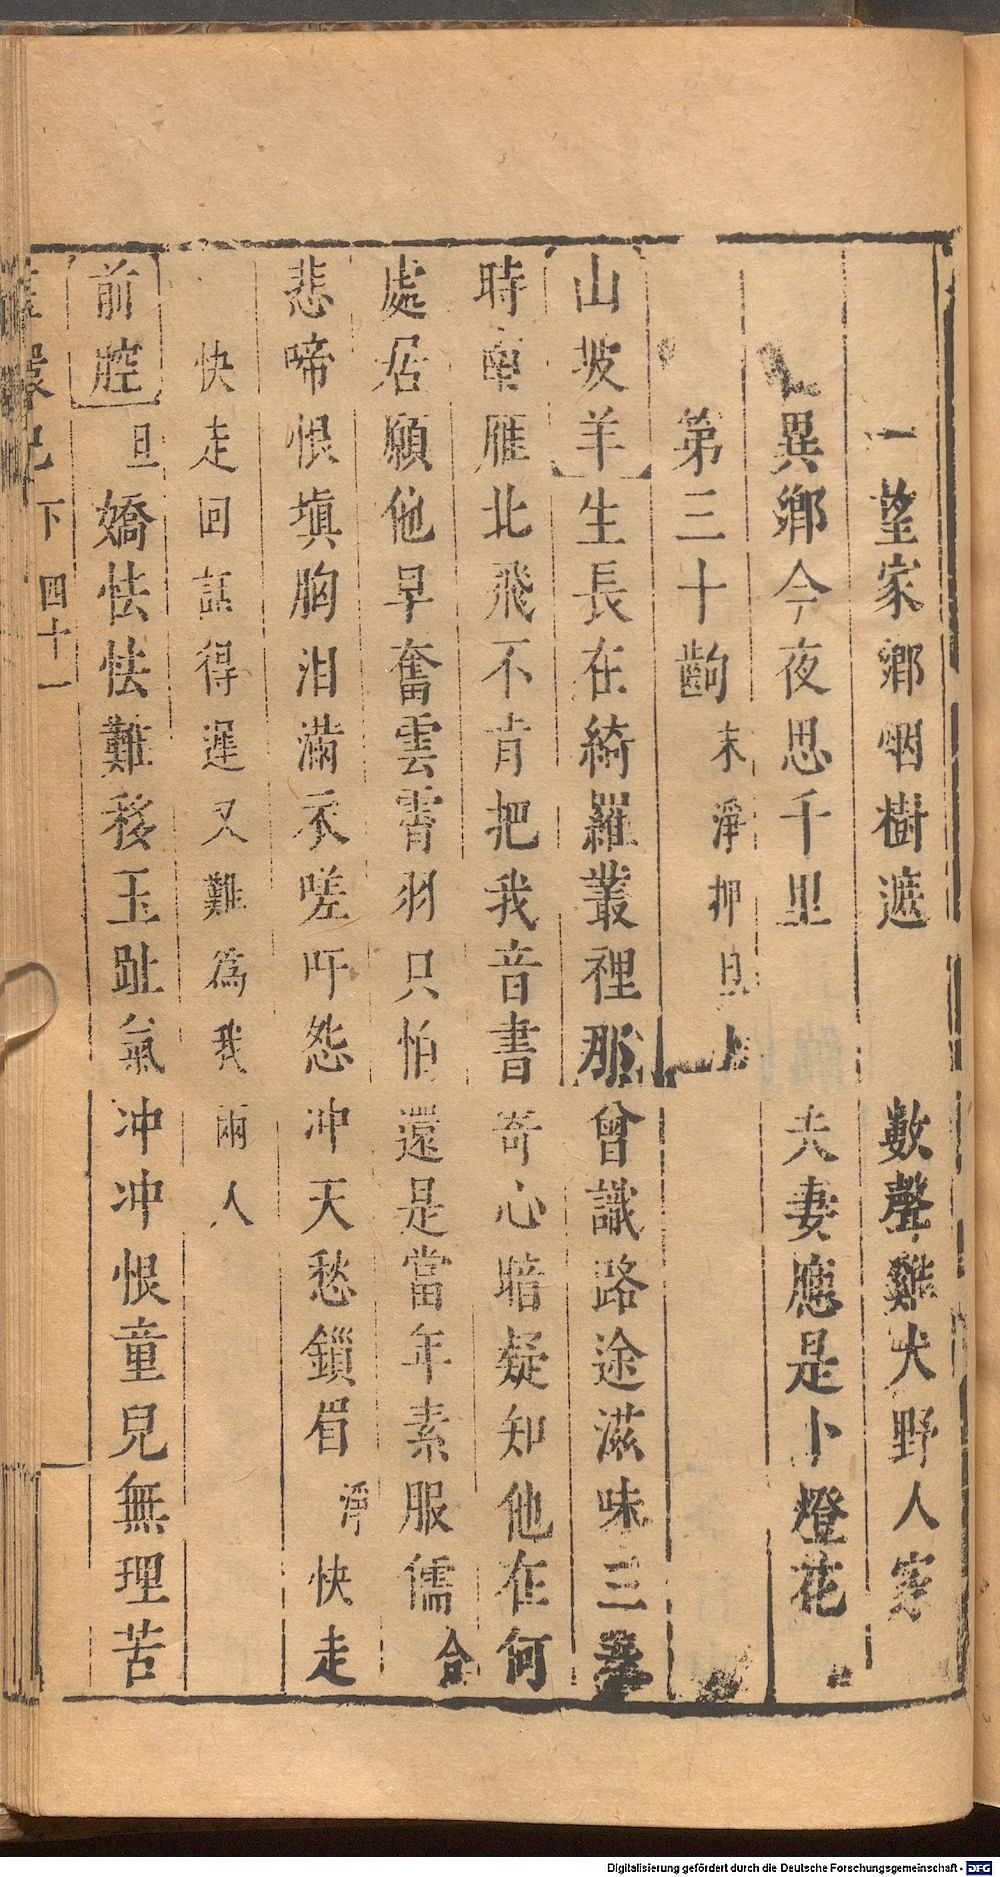 一望家鄉烟樹遮　數聲雞犬野人家
異鄉今夜思千里　夫妻應是卜燈花
第三十齣　末淨押旦上
山坡羊　生長在綺羅叢裡那曾識路途滋味三春
時南雁北飛不肯把我音書寄心暗疑知他在何
處居願他早奮雲霄羽只怕還是當年素服儒　合
悲啼恨塡胸泪滿衣嗟吁怨冲天愁鎖眉　淨　快走
快走回話得遲又難爲我兩人
前腔　旦　嬌怯怯難移玉趾氣冲冲恨童兒無理苦
環記　下　四十一
Digitalisierung gefördert durch die Deutsche Forschungsgemeinschaft - DFG